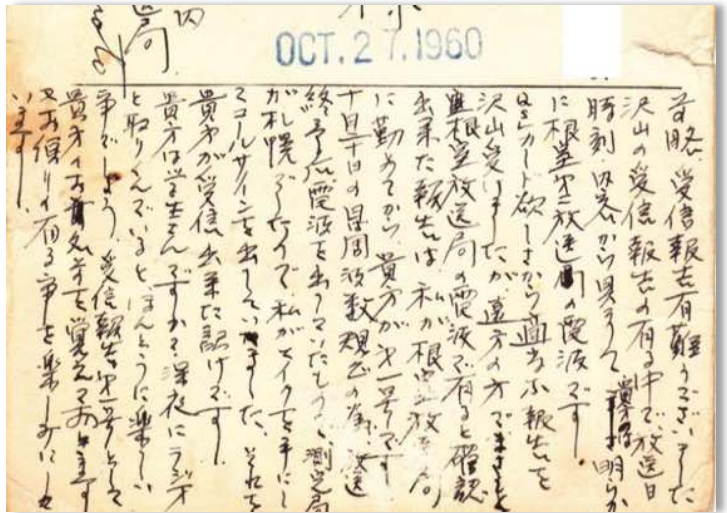 内
局
OCT. 27. 1960
前略、受信報告有難うございました
沢山の受信報告の有る中で、放送日
時刻・内容から見まして 明らか
に根室第一放送局の電波です。
QSLカード欲しさから適当な報告を
沢山受けましたが、遠方の方でまさしく
根室放送局の電波で有ると確認
出来た報告は、私が根室放送局
に勤めてから、貴方が第一号です。
周波数規正の為、放送
終了后電波を出していたもので、測定局
が札幌でしたので、私がマイクを手にし
てコールサインを出していました。それを
貴方が受信出来た訳です。
貴方は学生さんですか?深夜にラジオ
と取りくんでいると、ほんとうに楽しい
事でしょう、受信報告第一号として
貴方のお名前を覚えておきます
又お便りの有る事を楽しみにして
います。